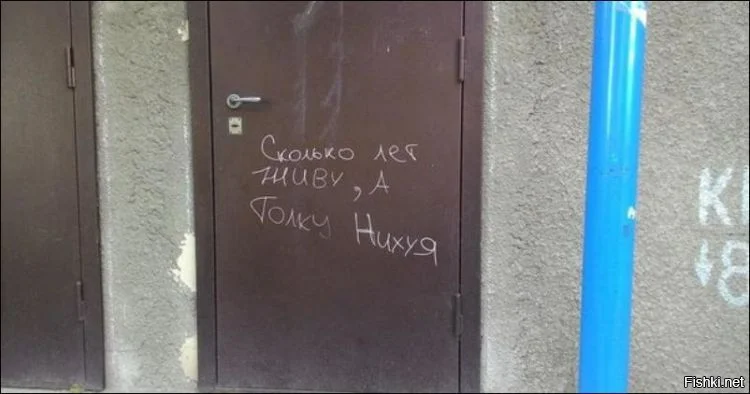 Сколько лет
живу, а
Толку Нихуя
К
↓8
Fishki.net